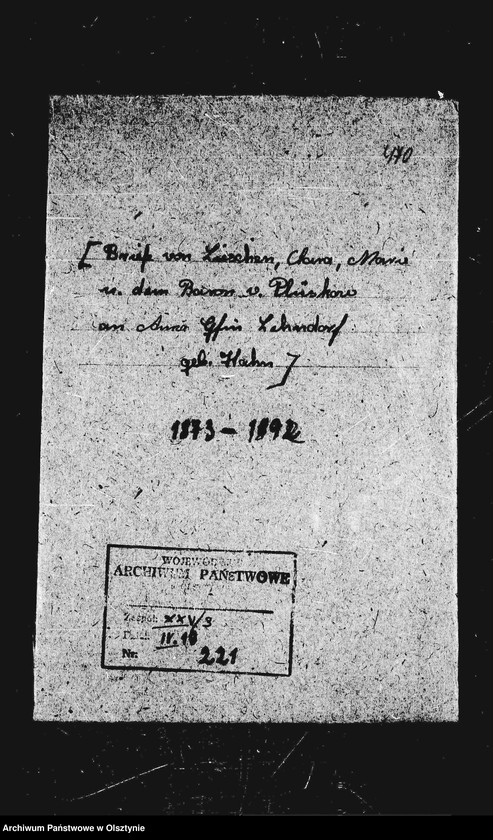 470
[ Briefe von Lieschen, Clara, Marie
u. dem Baron v. Plüskow
an Anna Gfin Lehndorf
geb. Hahn ]
1873 – 1892
WOJEWÓDZKIE
ARCHIWUM PAŃSTWOWE
Zespół: XXV/3
IV. 10
Nr: 221
Archiwum Państwowe w Olsztynie